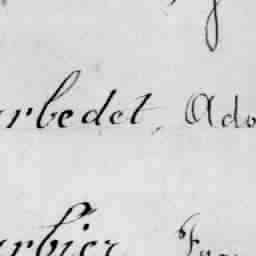 arbedet, Ado
arbier Fra